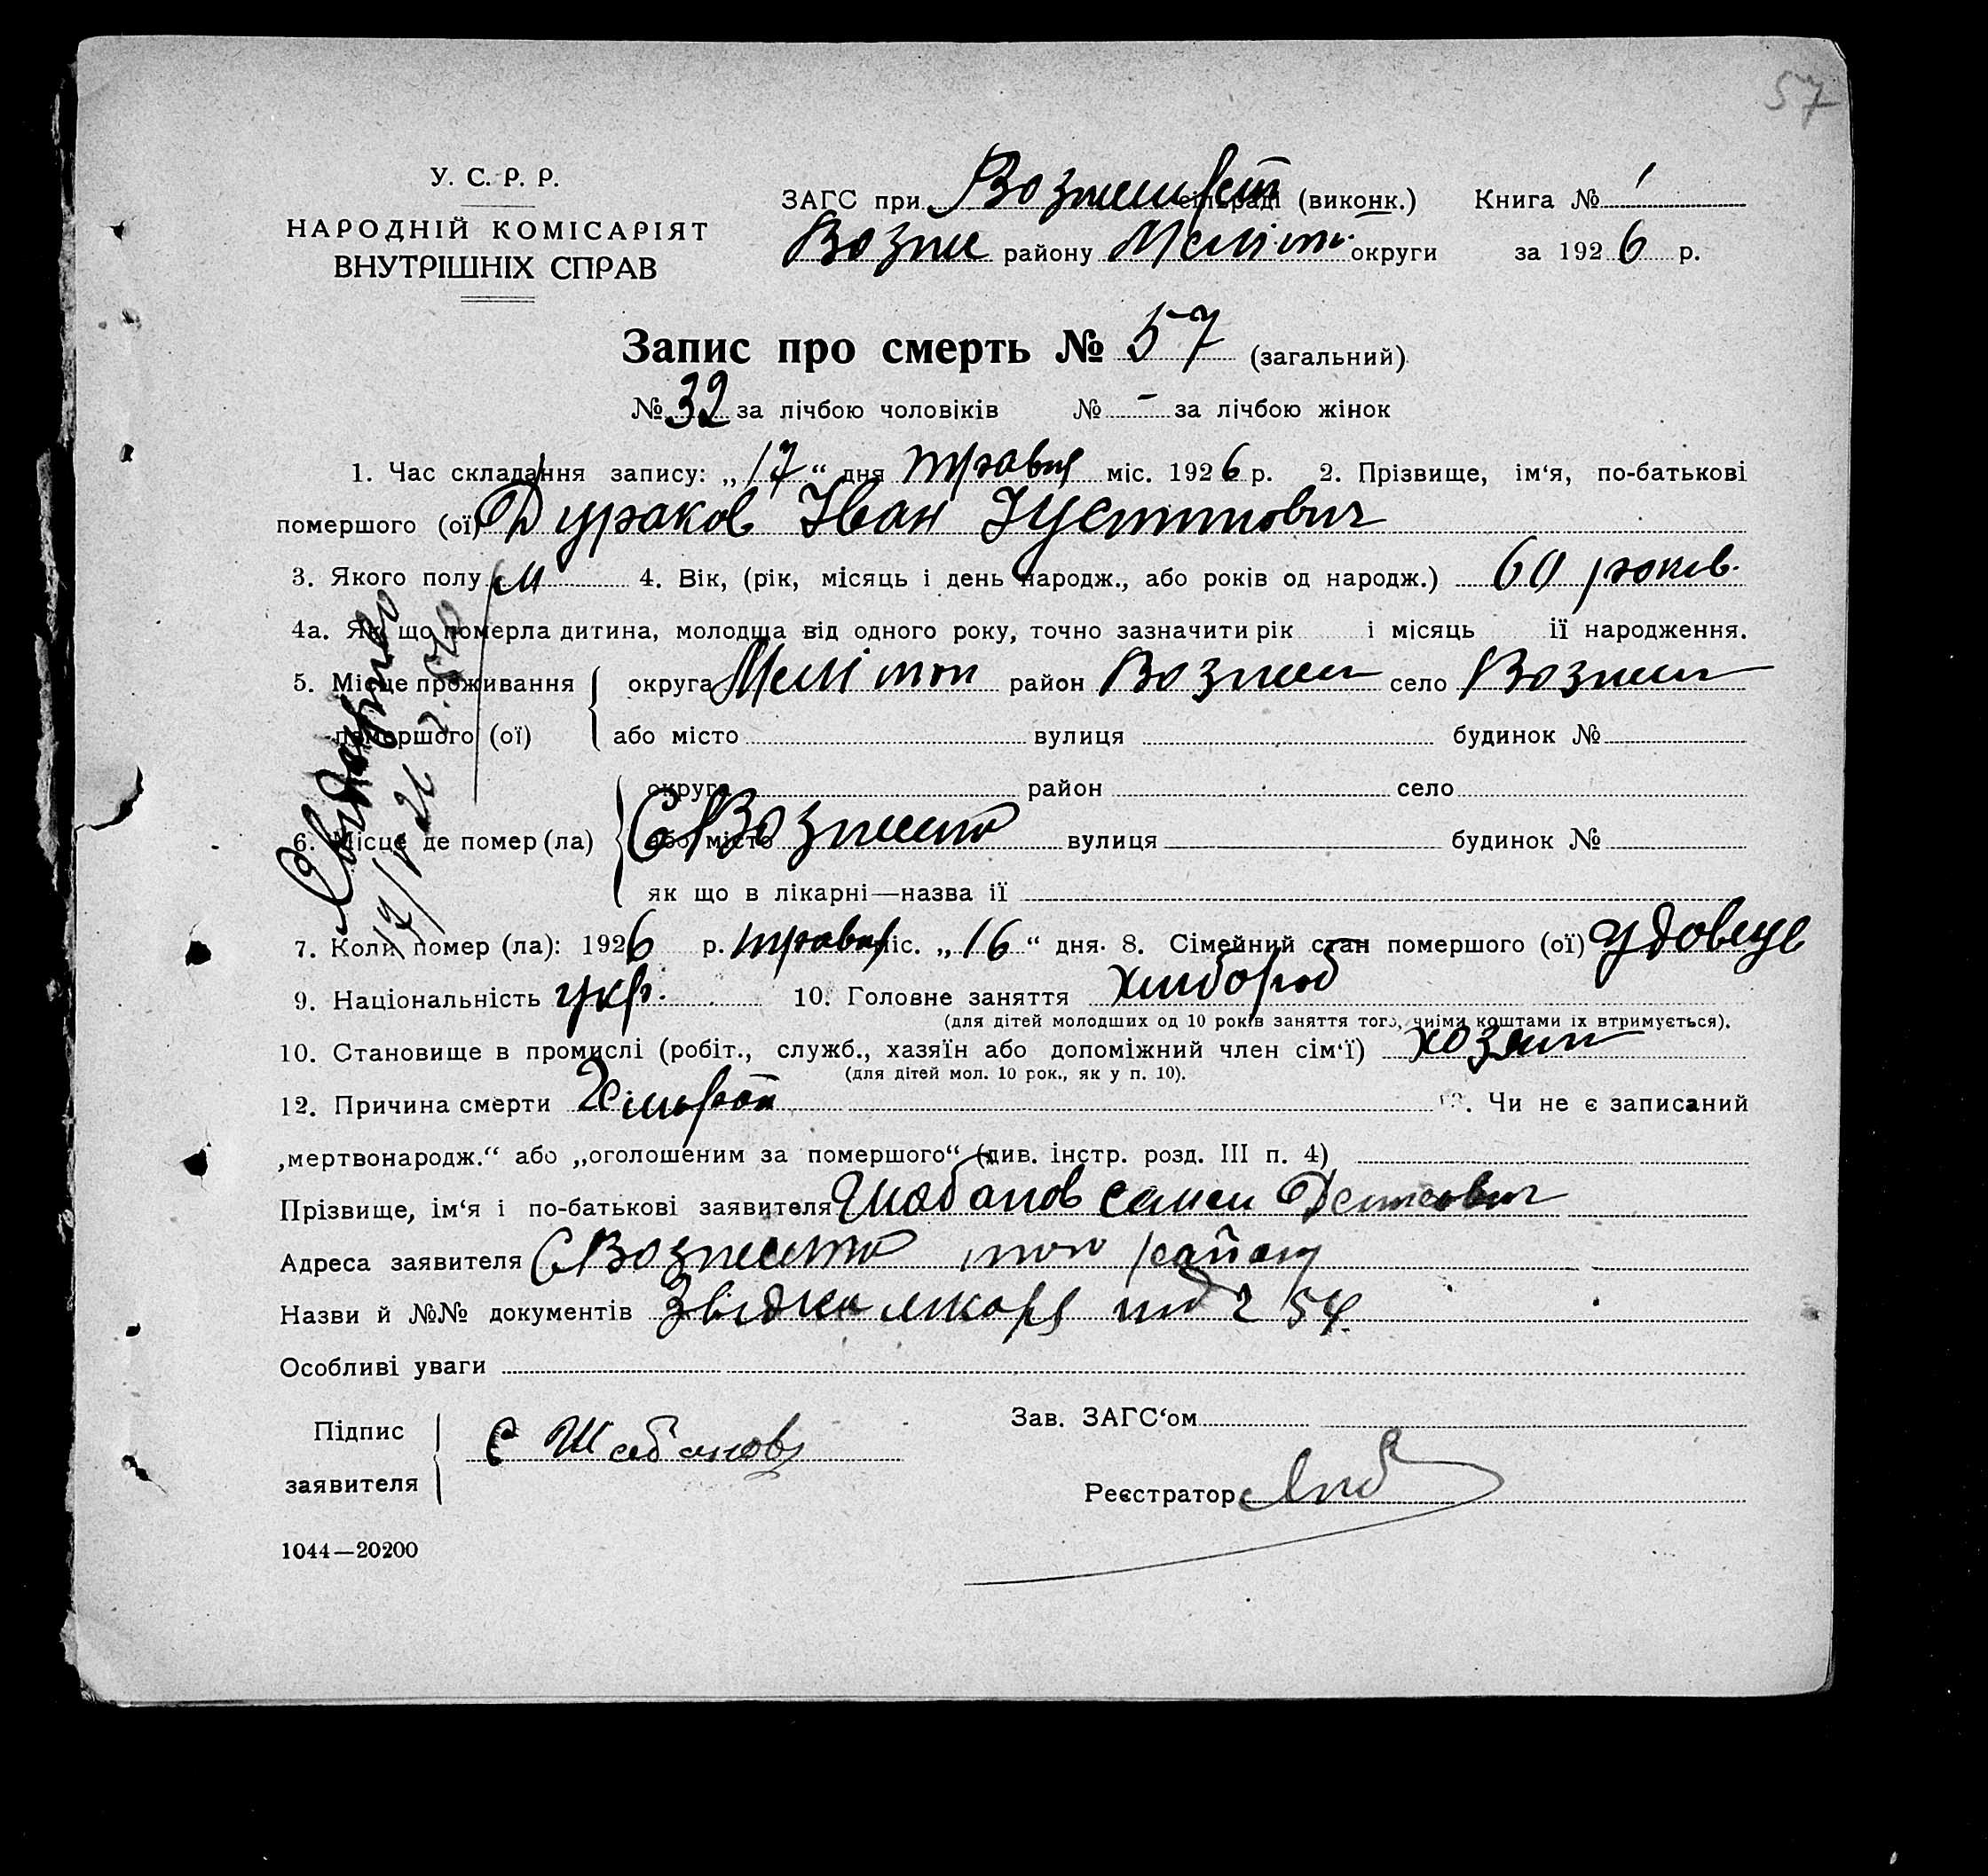 57
У. С. Р. Р.
НАРОДНІЙ КОМІСАРІЯТ
ВНУТРІШНІХ СПРАВ
ЗАГС при сільраді (виконк.) Книга № 1
Возне району Меліт. округи за 1926 р.
Запис про смерть № 57 (загальний)
№ 32 за лічбою чоловіків № - за лічбою жінок
1. Час складання запису: „17“ дня травня міс. 1926 р. 2. Прізвище, ім‘я, по-батькові
помершого (ої) Дураков Іван Іустинович
3. Якого полу м 4. Вік, (рік, місяць і день народж., або років од народж.) 60 років.
4а. Як що померла дитина, молодща від одного року, точно зазначити рік і місяць її народження.
5. Місце проживання округа Мелітоп район Вознесен село Вознесен
помершого (ої) або місто вулиця будинок №
округа район село
6. Місце де помер (ла) або місто С Вознесенка вулиця будинок №
як що в лікарні—назва її
7. Коли помер (ла): 1926 р. травня міс. „16“ дня. 8. Сімейний стан помершого (ої) удовець
9. Національність укр. 10. Головне заняття хлибороб
(для дітей молодших од 10 років заняття того, чиїми коштами їх втримується).
10. Становище в промислі (робіт., служб., хазяїн або допоміжний член сім‘ї) хозяин
(для дітей мол. 10 рок., як у п. 10).
12. Причина смерти 13. Чи не є записаний
„мертвонародж.“ або „оголошеним за помершого“ (див. інстр. розд. III п. 4)
Прізвище, ім‘я і по-батькові заявителя Шабанов Семен
Адреса заявителя С Вознесенка того району
Назви й №№ документів лікаря під 2 54.
Особливі уваги
Підпис
заявителя С Шабановъ
Зав. ЗАГС‘ом
Реєстратор
1044—20200
Свідоцтво
17/V 26 р.